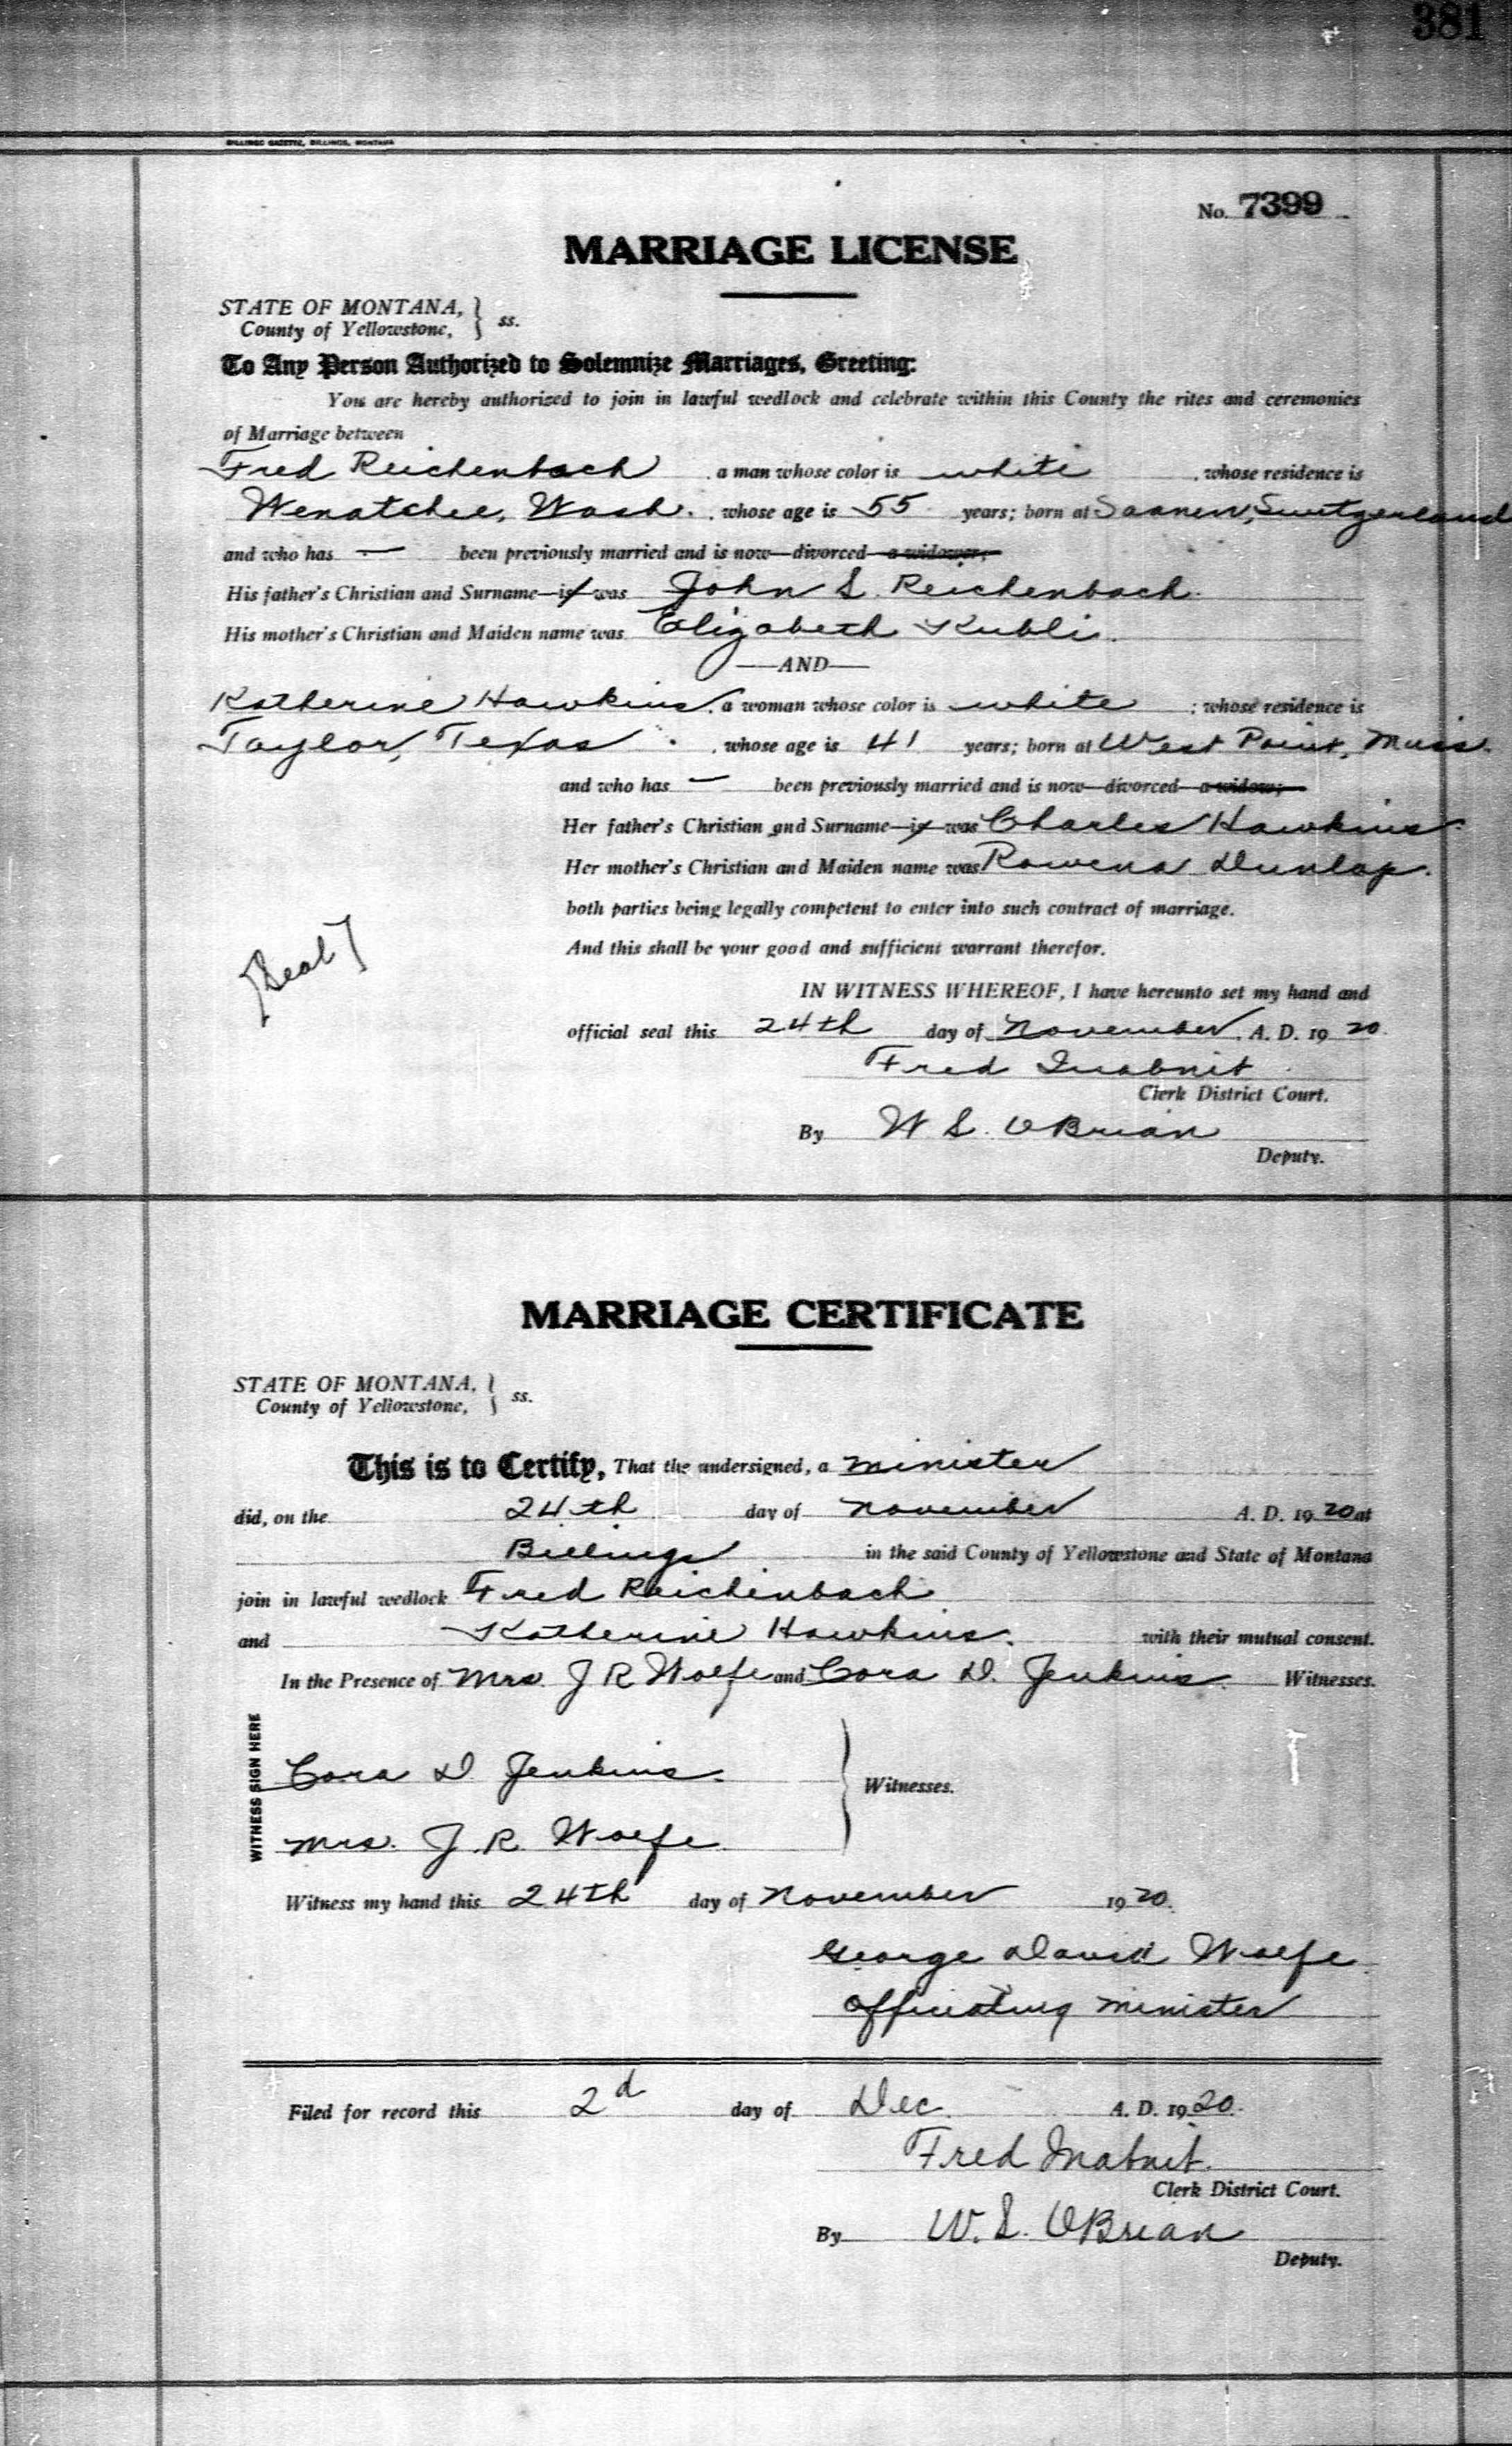 381
BILLINGS GAZETTE, BILLINGS, MONTANA
No. 7399
MARRIAGE LICENSE
STATE OF MONTANA,
County of Yellowstone, } ss.
To Any Person Authorized to Solemnize Marriages, Greeting:
You are hereby authorized to join in lawful wedlock and celebrate within this County the rites and ceremonies
of Marriage between
Fred Reichenbach, a man whose color is white, whose residence is
Wenatchee, Wash., whose age is 55 years; born at Saanen, Switzerland
and who has — been previously married and is now—divorced—a widower;
His father's Christian and Surname—is—was John S. Reichenbach.
His mother's Christian and Maiden name was Elizabeth Kubli.
—AND—
Katherine Hawkins, a woman whose color is white; whose residence is
Taylor, Texas., whose age is 41 years; born at West Point, Miss.
and who has — been previously married and is now—divorced—a widow;
Her father's Christian and Surname—is—was Charles Hawkins.
Her mother's Christian and Maiden name was Rowena Dunlap.
both parties being legally competent to enter into such contract of marriage.
And this shall be your good and sufficient warrant therefor.
[Seal]
IN WITNESS WHEREOF, I have hereunto set my hand and
official seal this 24th day of November, A. D. 1920.
Fred Inabnit
Clerk District Court.
By W S. O'Brian
Deputy.
MARRIAGE CERTIFICATE
STATE OF MONTANA,
County of Yellowstone, } ss.
This is to Certify, That the undersigned, a minister
did, on the 24th day of November A. D. 1920 at
Billings in the said County of Yellowstone and State of Montana
join in lawful wedlock Fred Reichenbach
and Katherine Hawkins. with their mutual consent.
In the Presence of Mrs. J R Wolfe and Cora D. Jenkins. Witnesses.
WITNESS SIGN HERE
Cora D. Jenkins.
Witnesses.
Mrs. J. R. Wolfe.
Witness my hand this 24th day of November 1920.
George David Wolfe
Officiating minister
Filed for record this 2d day of Dec. A. D. 1920.
Fred Inabnit.
Clerk District Court.
By W. S. O'Brian
Deputy.